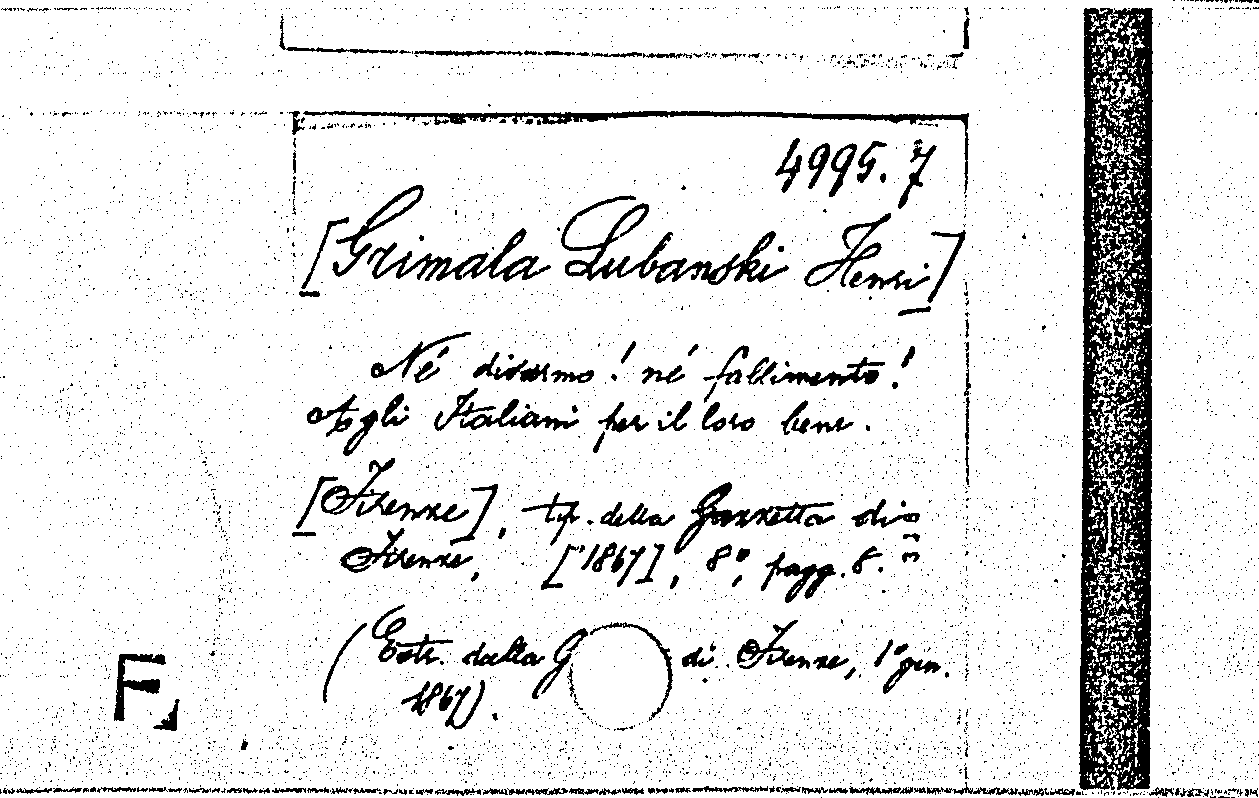 4995.7
[Grimala Lubanski Henri]
Né disarmo! né fallimento!
Agli Italiani per il loro bene.
[Firenze], tip. della Gazzetta di
Firenze, [1867], 8°, pagg. 8.
(Estr. dalla G di Firenze, 1° gen.
1867).
F